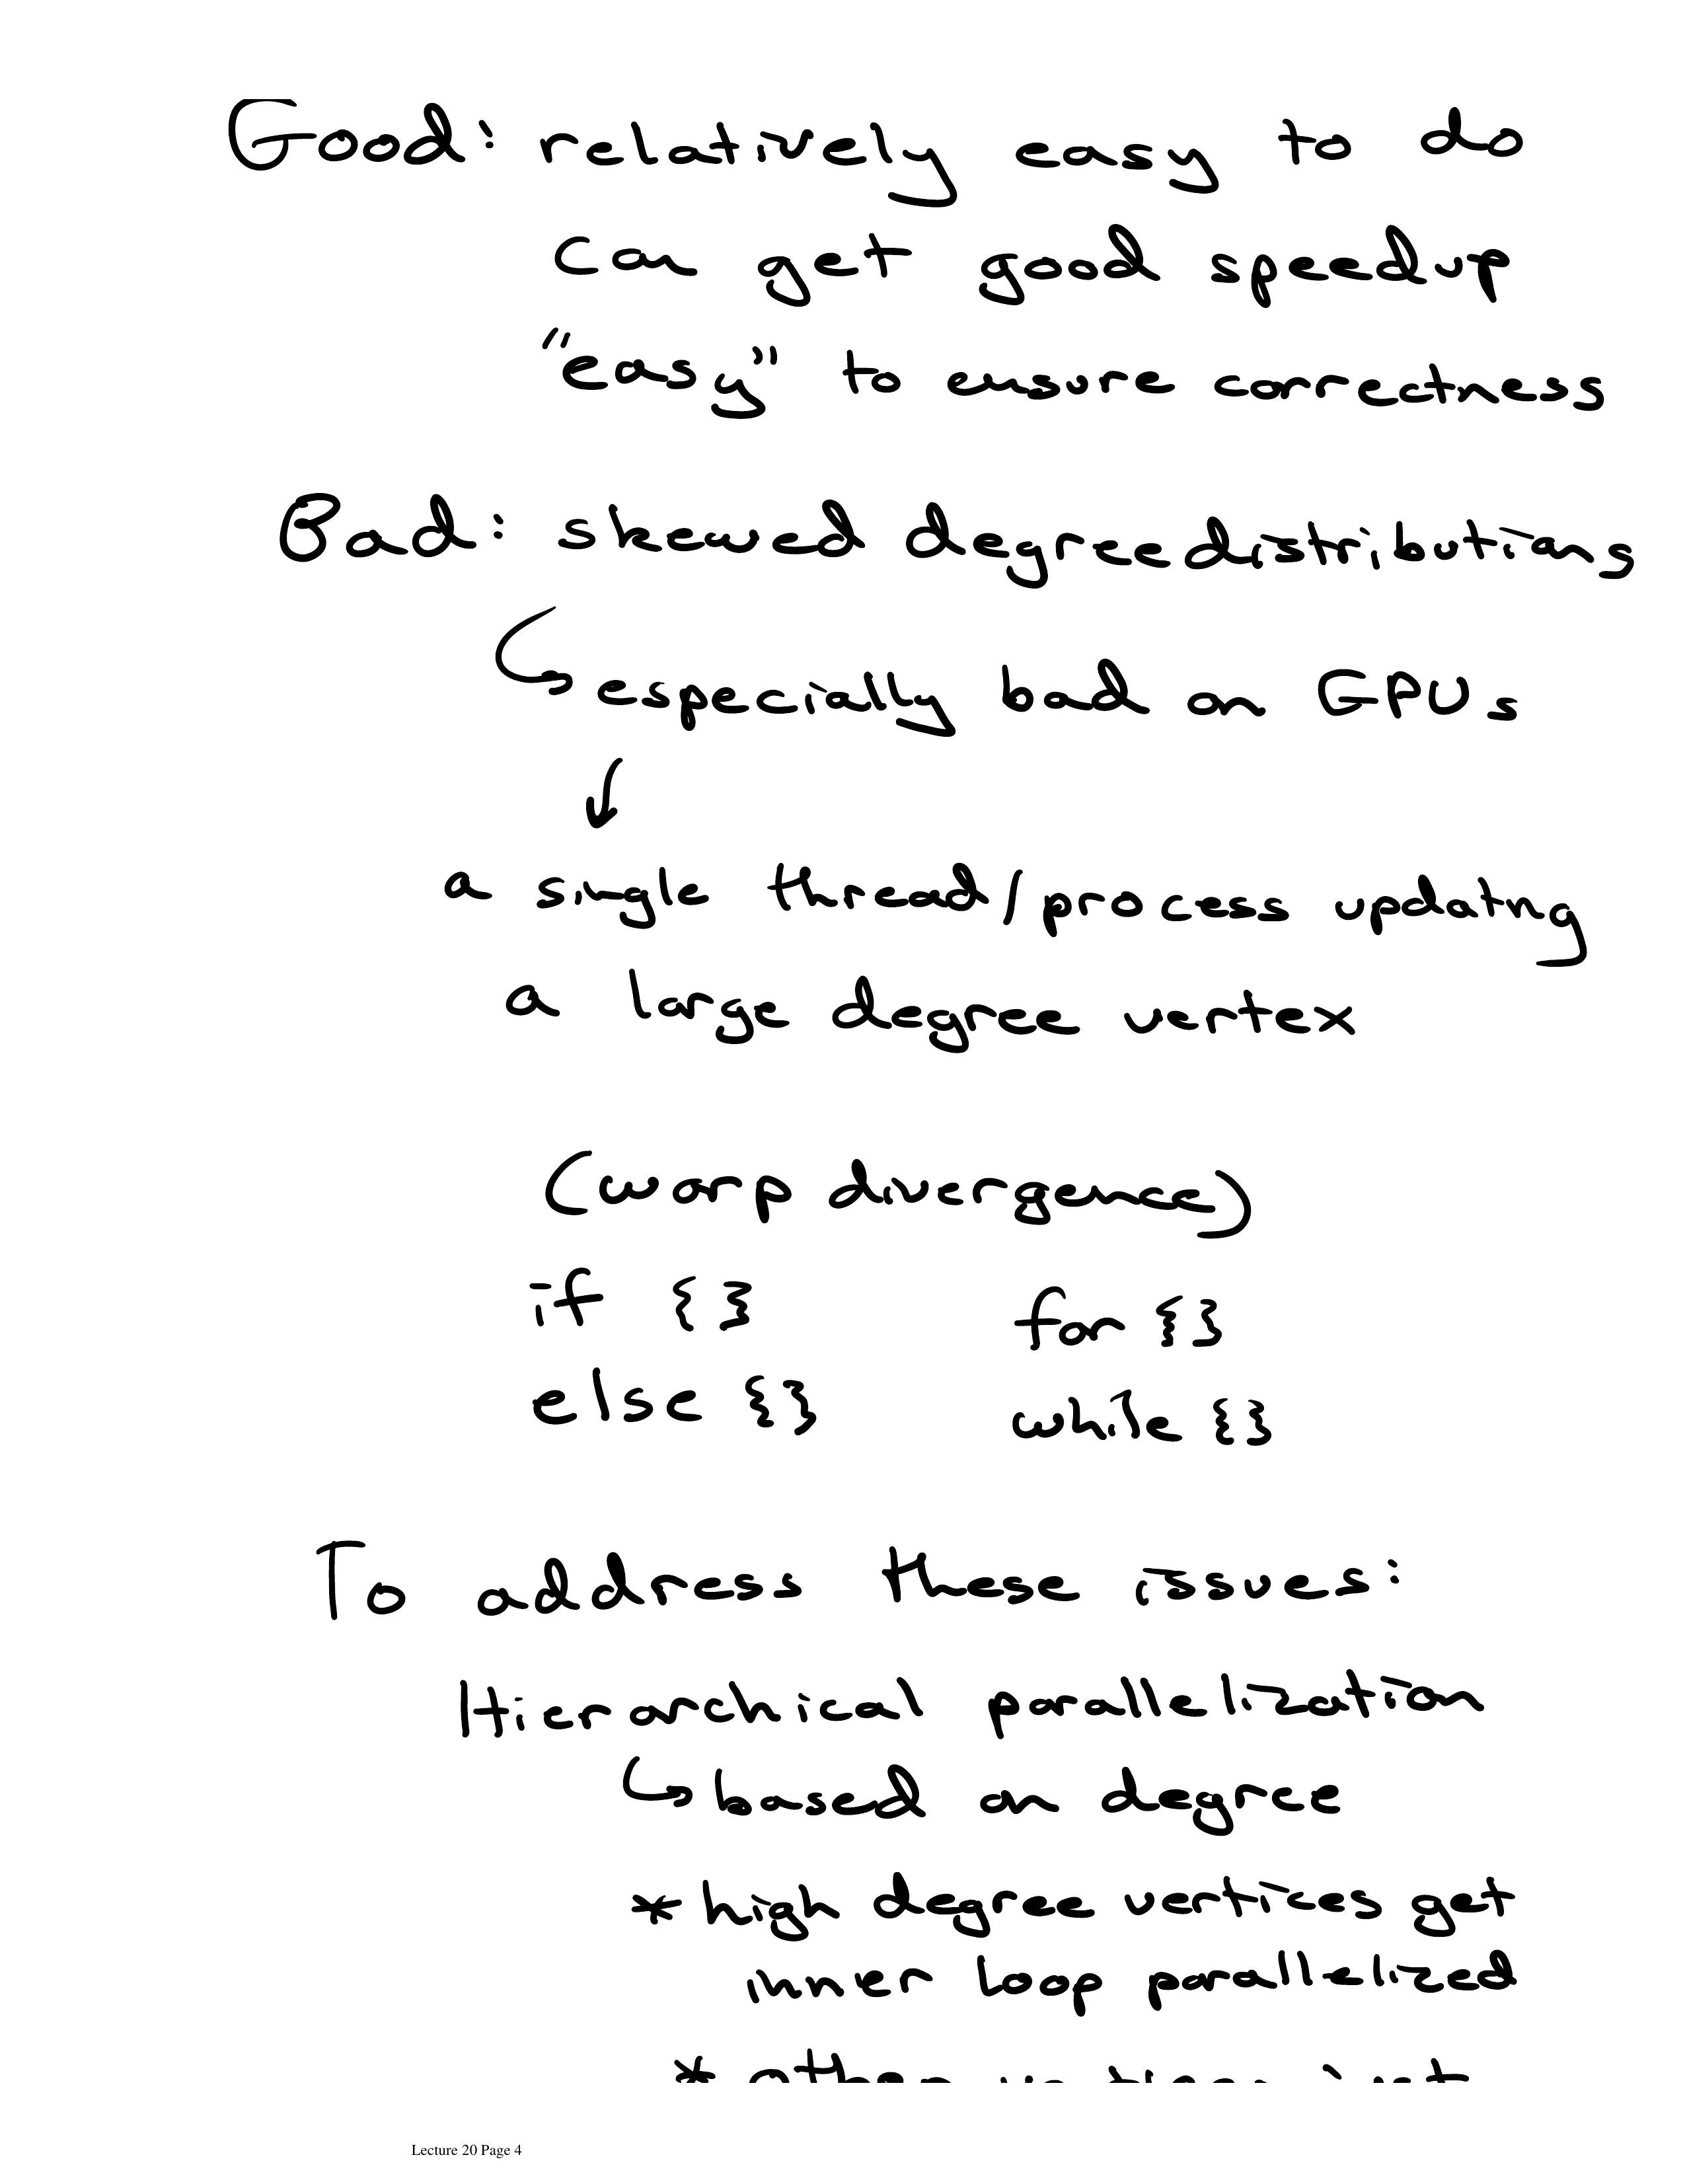 Good: relatively easy to do
can get good speedup
"easy" to ensure correctness
Bad: skewed degree distributions
especially bad on GPUs
a single thread/process updating
a large degree vertex
(warp divergence)
if {} for {}
else {} while {}
To address these issues:
Hierarchical parallelization
based on degree
* high degree vertices get
inner loop parallelized
* other vertices just
Lecture 20 Page 4